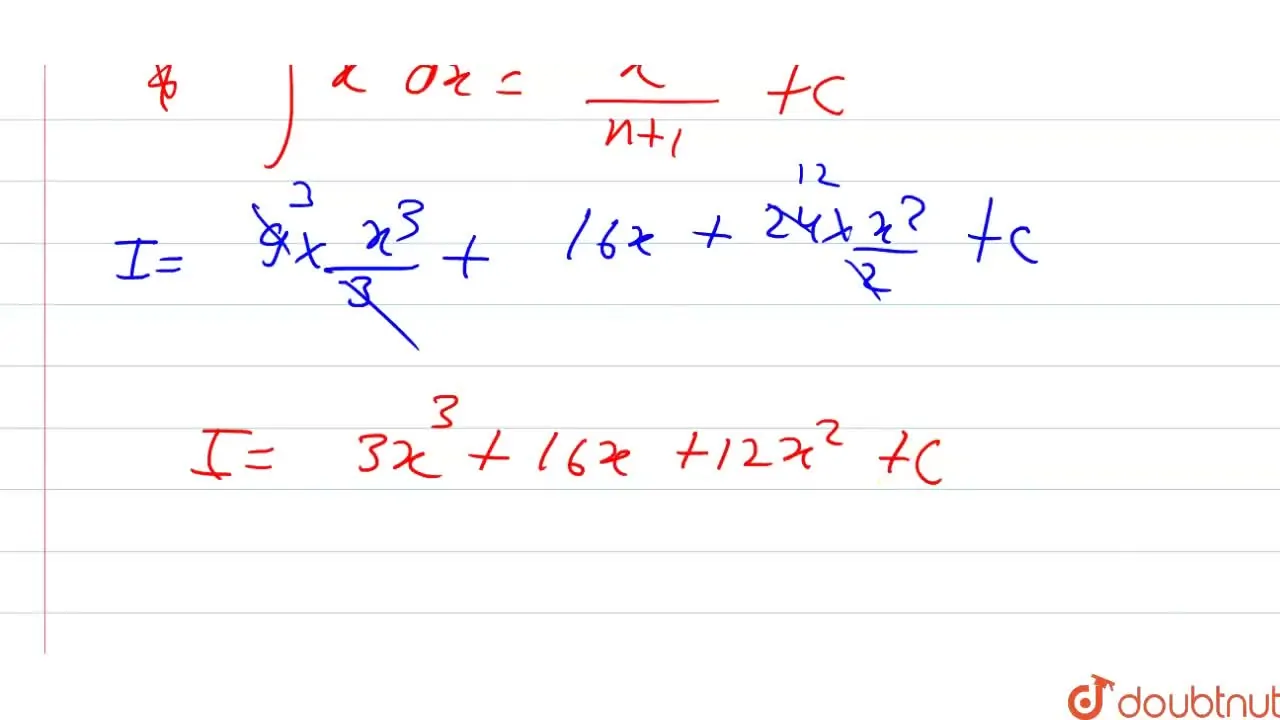 ∫ x dx = x/(n+1) + C
I = 9 × x³/3 3 + 16x + 24 × x²/2 12 + C
I = 3x³ + 16x + 12x² + C
doubtnut